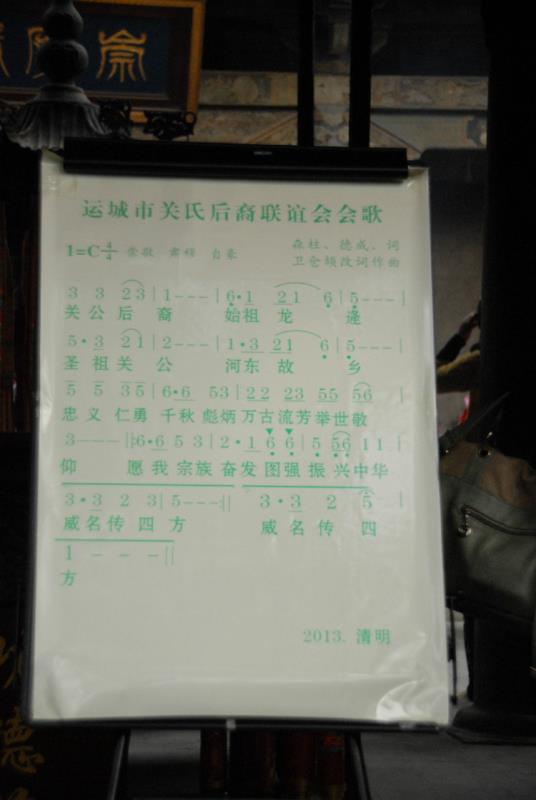 崇
运城市关氏后裔联谊会会歌
1=C 4/4 崇敬 肃穆 自豪 森柱、德成、词
卫仓颉改词作曲
3 3 2 3 | 1 - - - | 6 • 1 2 1 6 | 5 - - - |
关公后裔 始祖龙逄
5 • 3 2 1 | 2 - - - | 1 • 3 2 1 6 | 5 - - - |
圣祖关公 河东故乡
5 5 3 5 | 6 • 6 5 3 | 2 2 2 3 5 5 5 6 |
忠义仁勇 千秋彪炳万古流芳举世敬
3 - - - - ||: 6 • 6 5 3 | 2 • 1 6 6 | 5 5 6 1 1 |
仰 愿我宗族奋发图强振兴中华
3 • 3 2 3 | 5 - - - :|| 3 • 3 2 5 |
威名传四方 威名传四
1 - - - ||
方
2013. 清明
德